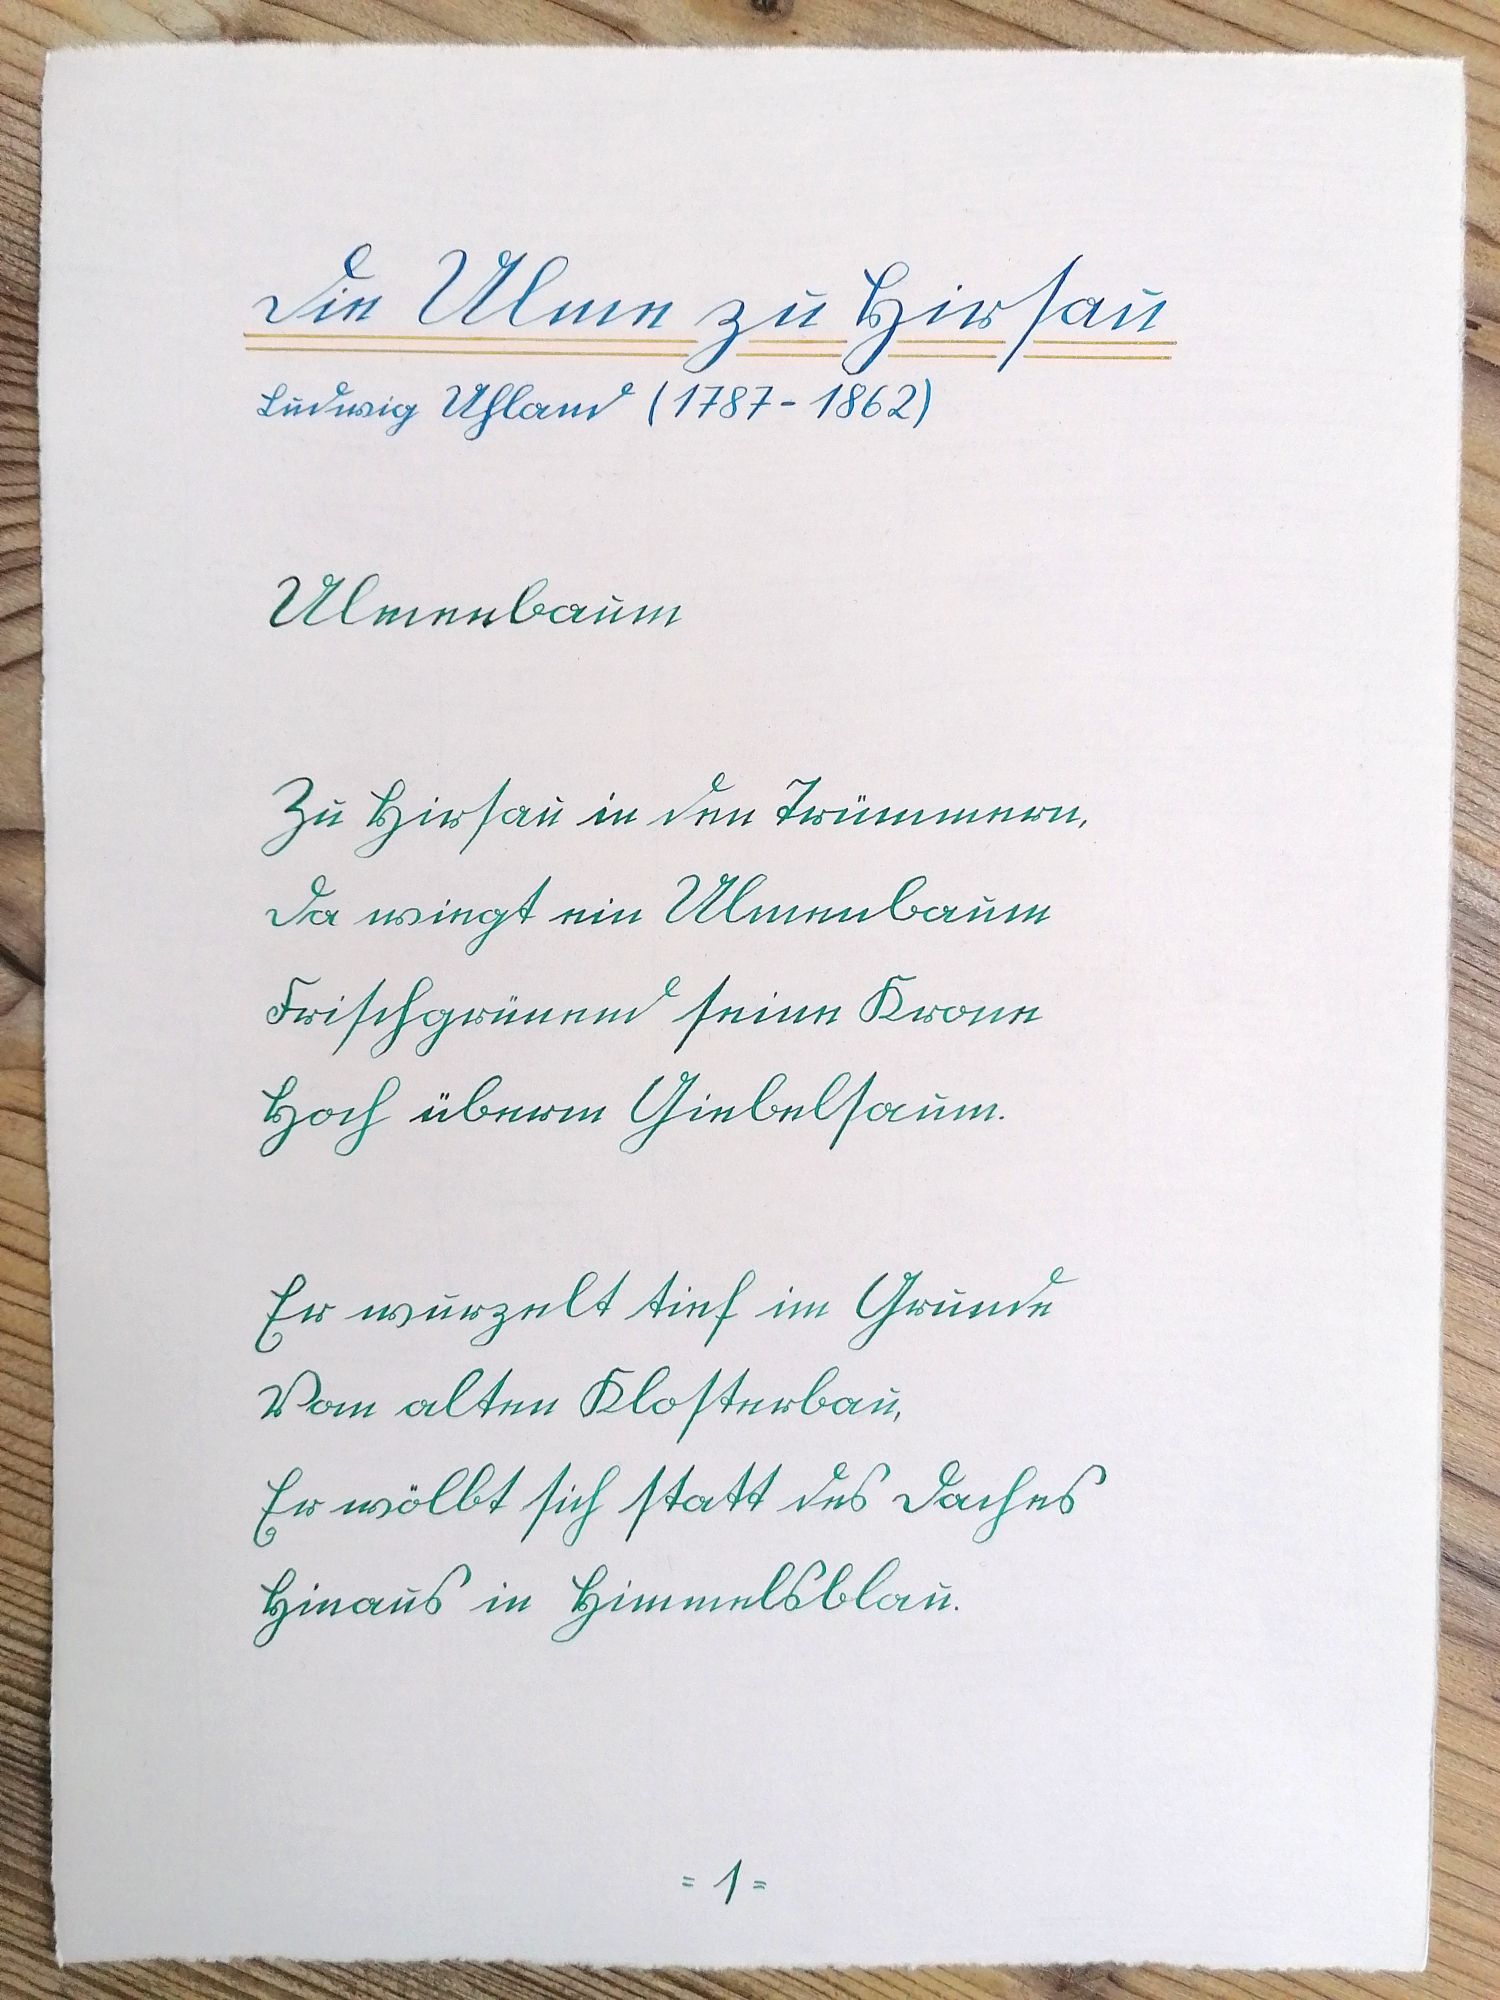 Die Ulme zu Hirsau
Ludwig Uhland (1787-1862)
Ulmenbaum
Zu Hirsau in den Trümmern,
Da wiegt ein Ulmenbaum
Frischgrünend seine Krone
Hoch überm Giebelsaum.
Er wurzelt tief im Grunde
Vom alten Klosterbau,
Er wölbt sich statt des Daches
Hinaus in Himmelsblau.
= 1 =